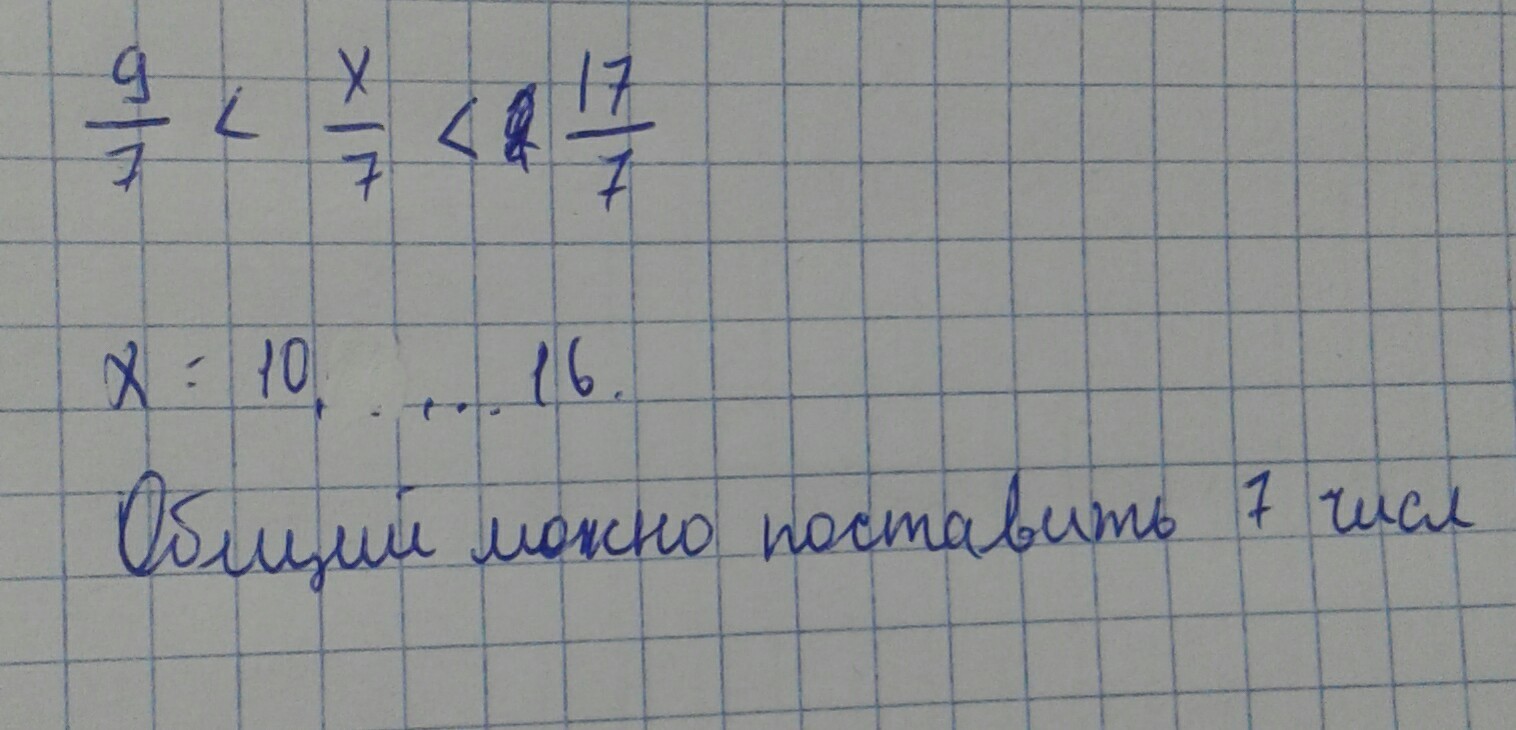 9/7 < x/7 < 17/7
x = 10, . , . . . 16.
Общий можно поставить 7 числ